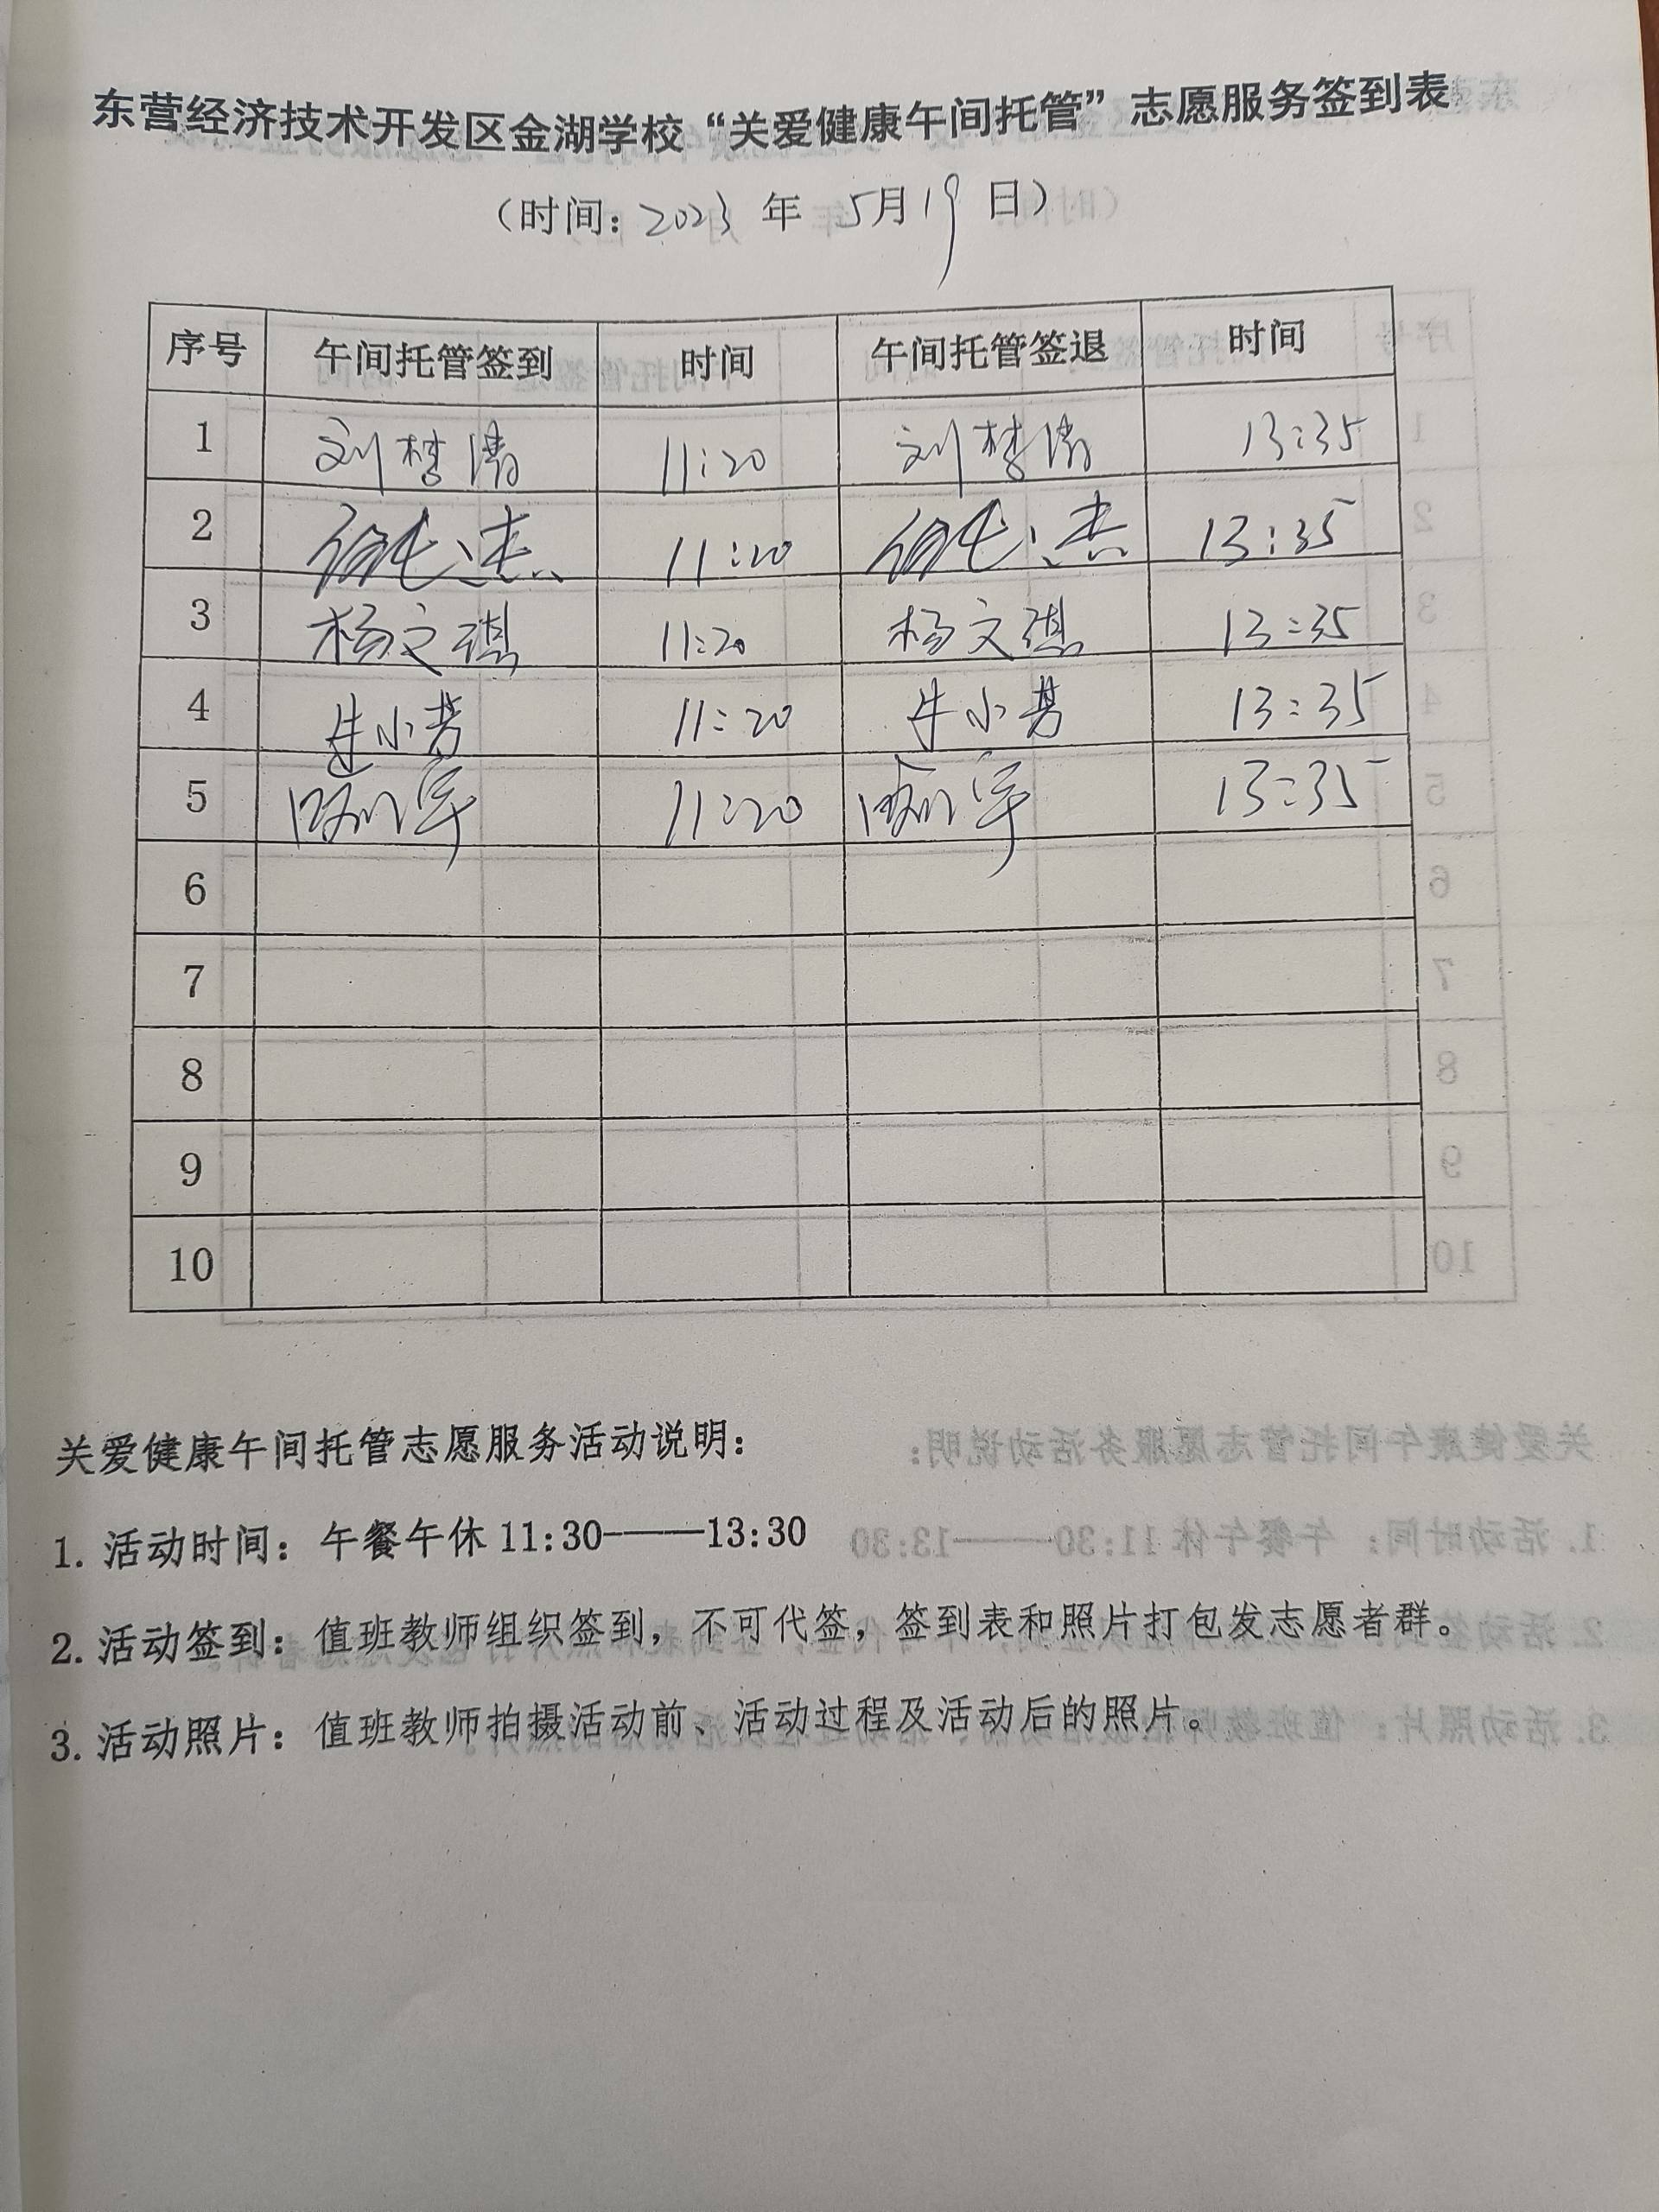 东营经济技术开发区金湖学校“关爱健康午间托管”志愿服务签到表
（时间：2023 年 5月19 日）
序号 午间托管签到 时间 午间托管签退 时间
1 刘梦倩 11:20 刘梦倩 13:35
2 11:20 13:35
3 杨文琪 11:20 杨文琪 13:35
4 牛小芳 11:20 牛小芳 13:35
5 11:20 13:35
6
7
8
9
10
关爱健康午间托管志愿服务活动说明：
1. 活动时间：午餐午休 11:30-——13:30
2. 活动签到：值班教师组织签到，不可代签，签到表和照片打包发志愿者群。
3. 活动照片：值班教师拍摄活动前、活动过程及活动后的照片。